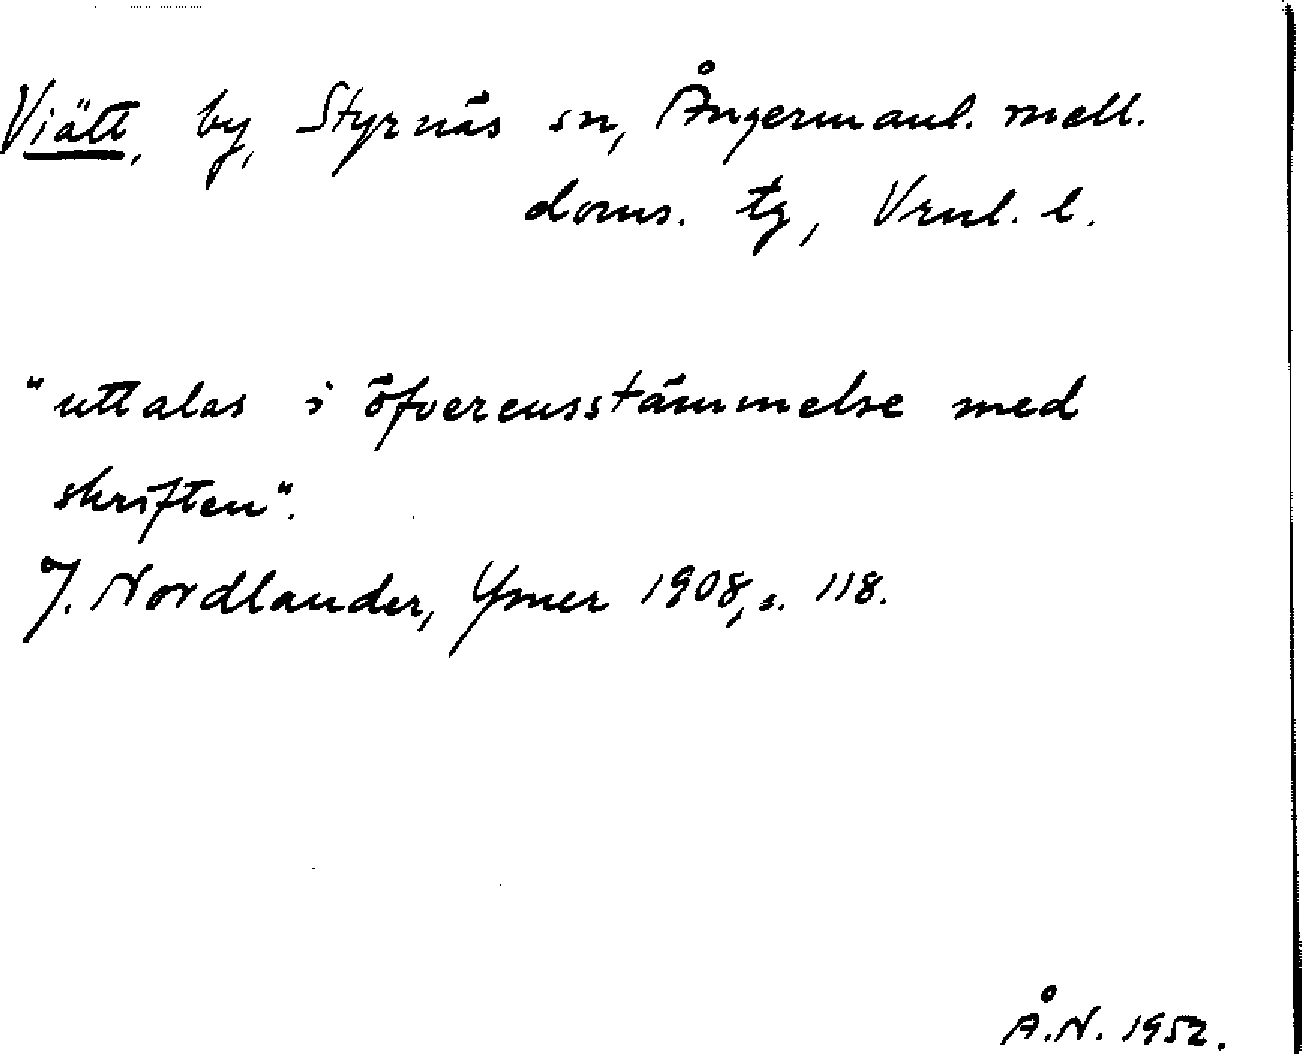 Viätt, by, Styrnäs sn, Ångermanl. mell.
doms. tg, Vrnl. l.
"uttalas i öfverensstämmelse med
skriften".
J. Nordlander, Ymer 1908, s. 118.
Å.N. 1952.